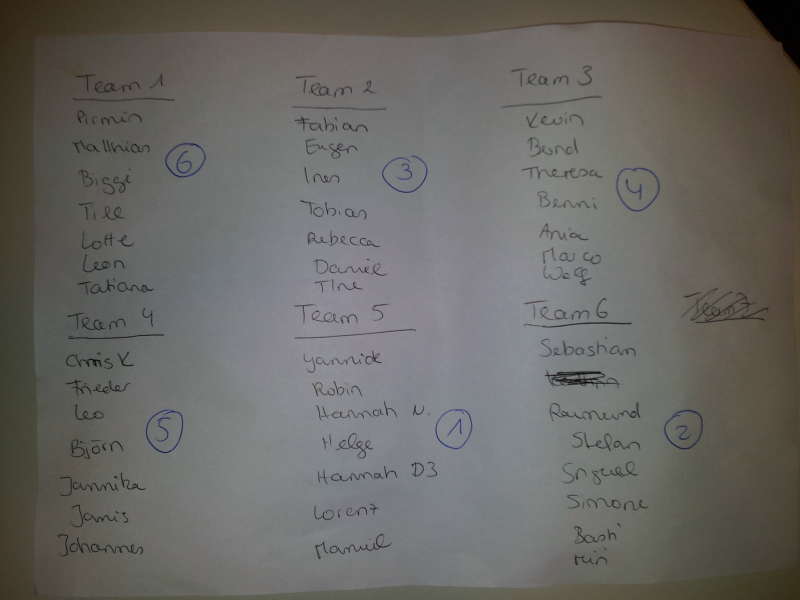 Team 1
Pirmin
Matthias
Biggi
Till
Lotte
Leon
Tatiana
6
Team 2
Fabian
Eugen
Ines
Tobias
Rebecca
Daniel
Tine
3
Team 3
Kevin
Bernd
Theresa
Benni
Anja
Marco
Wolf
4
Team 4
Chris K
Frieder
Leo
Björn
Jannika
Janis
Johannes
5
Team 5
Yannick
Robin
Hannah N.
Helge
Hannah D3
Lorenz
Manuel
1
Team 6
Sebastian
Raimund
Stefan
Simone
Basti
2